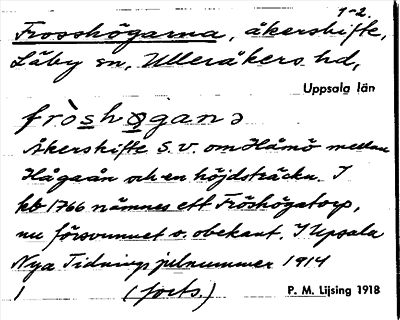 1-2.
Frosshögarna, åkerskifte,
Läby sn, Ulleråkers hd,
Uppsala län
fròshøganɔ
Åkerskifte S.V. om Håmö mellan
Hågaån och en höjdsträcka. I
kb 1766 nämnes ett Fröshögatorp,
nu försvunnet o. obekant. I Upsala
Nya Tidnings julnummer 1914
1 (forts.) P. M. Lijsing 1918